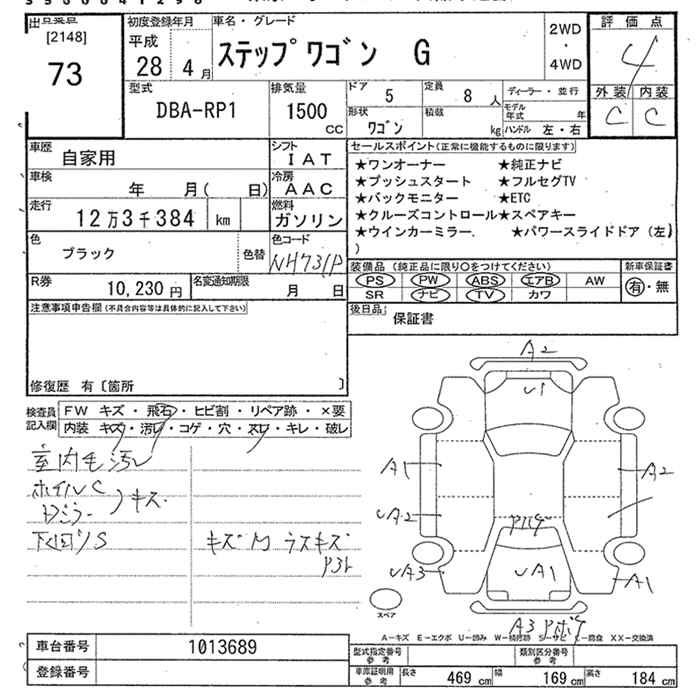 出品票点
[2148]
73
初度登録年月
平成
28 年 4 月
車名・グレード
ステップワゴン G
2WD
・
4WD
評価点
4
外装 内装
C C
型式
DBA-RP1
排気量
1500
CC
ドア 5
定員 8 人
ディーラー・並行
形状 ワゴン
積載 kg
モデル年式 年
ハンドル 左・右
車歴 自家用
シフト IAT
車検 年 月( 日)
冷房 AAC
走行 12万3千384 km
燃料 ガソリン
色 ブラック
色替
色コード NH731P
R券 10,230 円
名変通知期限 月 日
セールスポイント(正常に機能するものに限ります)
★ワンオーナー ★純正ナビ
★プッシュスタート ★フルセグTV
★バックモニター ★ETC
★クルーズコントロール★スペアキー
★ウインカーミラー ★パワースライドドア(左)
)
装備品 (純正品に限り○をつけてください)
新車保証書
PS PW ABS エアB AW
SR ナビ TV カワ
有・無
注意事項申告欄(不具合内容等は具体的に記入して下さい)
後日品 保証書
修復歴 有〔箇所 〕
検査員記入欄
FW キズ・飛石・ヒビ割・リペア跡・×要
内装 キズ・汚レ・コゲ・穴・スレ・キレ・破レ
室内毛汚レ
ホイルC
ドアミラー )キズ
下回りS
キズM ラスキズ
A2
U1
A1
A2
UA2
UA3
UA1
A1
A3
スペア
A-キズ E-エクボ U-凹み W-補修跡 S-サビ C-腐食 XX-交換済
車台番号 1013689
登録番号
型式指定番号 参考
類別区分番号 参考
車庫証明用 参考
長さ 469 cm
幅 169 cm
高さ 184 cm